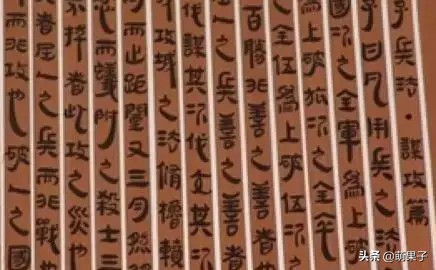 子兵法·謀攻篇
子曰凡用兵之法
國次之全軍爲上破
上破旅次之全卒
之全伍爲上破伍次之
百勝非善之善者
之兵善之善者
伐謀其次伐交其
攻城之法脩櫓轒
而止距闉又三月然
而蟻附之殺士三
不拔者此攻之災也
者屈人之兵而非戰也
而非攻也破人之國
头条 @萌果子